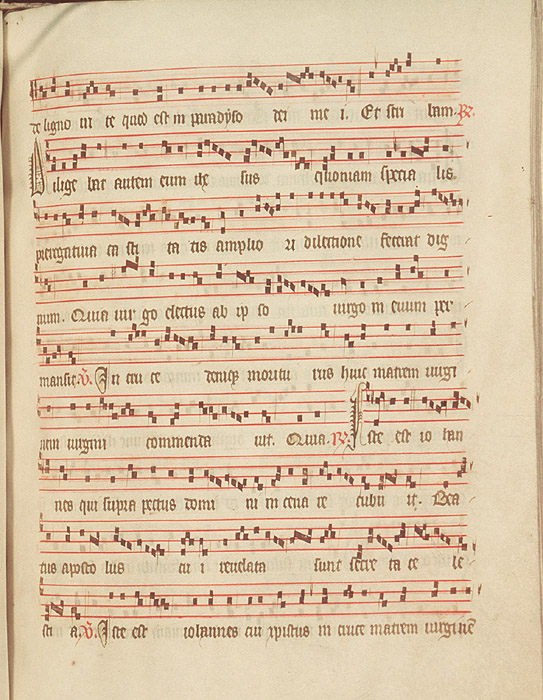 de ligno vi te quod est in paradyso dei me i. Et stri bam. R.
Dilige bat autem eum ihc sus quoniam specia lis
prerogatiua ca sti ta tis amplio ri dilectione fecerat dig
num. Quia uir go electus ab ip so uirgo in euum per
mansit. V. In cru ce deniqz moritu rus huic matrem uirgi
nem uirgini commenda uit. Quia. R. Iste est io han
nes qui supra pectus domi ni in cena re cubu it. Bea
tus aposto lus cu i reuelata sunt secre ta ce le
sti a. V. Iste est iohannes cui xpistus in cruce matrem uirginē